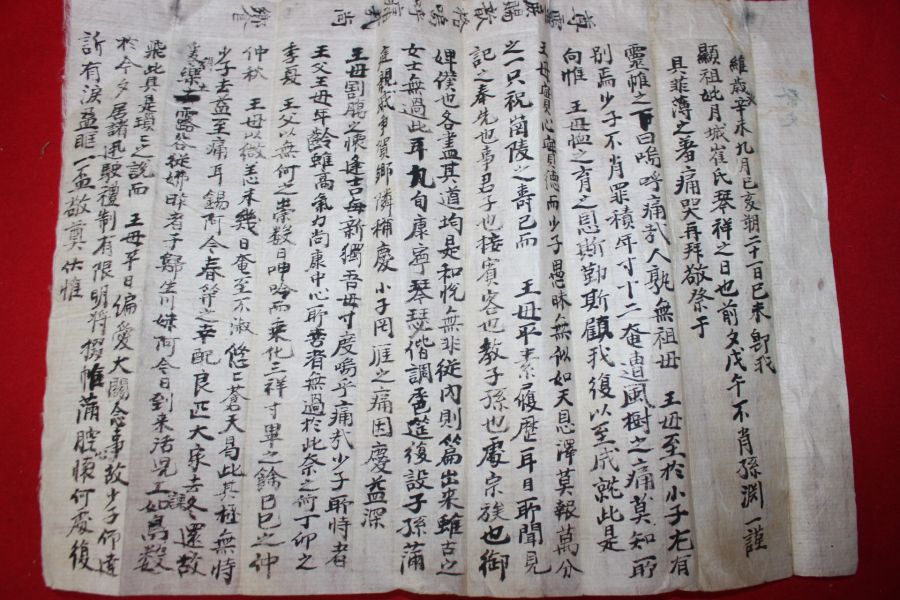 維歲辛未九月己亥朔二十一日己未 卽我
顯祖妣月城崔氏琴祥之日也前夕戊午不肖孫淵一謹
具菲薄之奠痛哭再拜敬祭于
靈帷之下曰嗚呼痛哉人孰無祖母 王母至於小子尤有
別焉少子不肖罪積年才十二奄遭風樹之痛莫知所
向惟 王母恤之育之恩斯勤斯顧我復以至成就此是
王母實心實德而少子愚昧無似如天恩澤莫報萬分
之一只祝岡陵之壽已而 王母平素履歷耳目所聞見
記之奉先也事君子也接賓客也敎子孫也處宗族也御
婢僕也各盡其道均是和悅無非從內則篇出來雖古之
女士無過此耳九旬康寧琴瑟偕調筵後設子孫滿
庭親戚爭賀鄕隣稱慶小子罔涯之痛因慶益深
王母割腸之懷逢吉每新獨吾母寸度嗚乎痛哉少子所恃者
王父王母年齡雖高氣力尙康中心所喜者無過於此奈之何丁卯之
季夏 王父以無何之祟數日呻吟而乘化三祥才畢之餘己巳之仲
仲秋 王母以微恙未幾日奄至不淑悠悠蒼天曷此其極無恃
少子去益至痛耳錫阿今春笄之幸配良匹大宋去冬還故
露谷從娣昨者于歸生川妹阿今日到來活況
飛此具是瑣瑣之說而 王母平日偏愛大關念事故少子仰達
於今夕居諸迅駛禮制有限明將撤帷滿腔懷何處復
訴有淚盈眶一盃敬奠伏惟
尊靈庶賜歆格嗚呼痛哉尙
饗